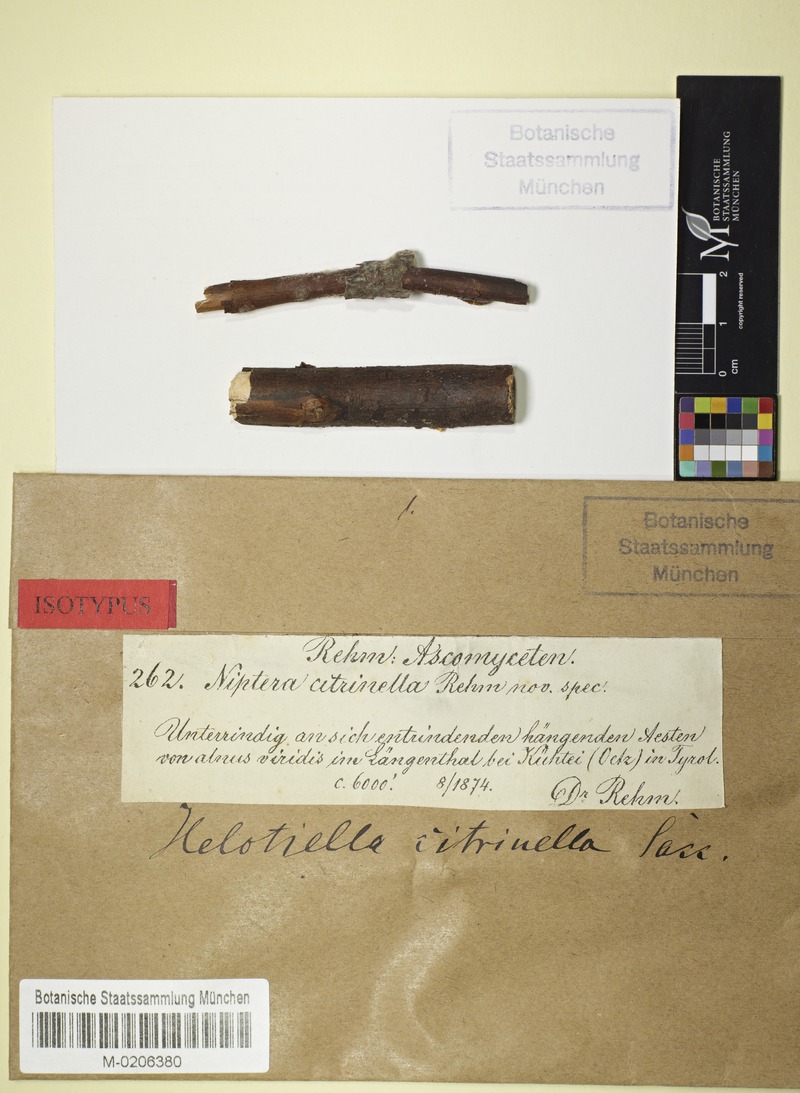 Botanische
Staatssammlung
München
BOTANISCHE
STAATSSAMMLUNG
MÜNCHEN
M
copyright reserved
0 1 2
cm
1.
Botanische
Staatssammlung
München
ISOTYPUS
Rehm: Ascomyceten.
262. Niptera citrinella Rehm nov. spec.
Unterrindig an sich entrindenden hängenden Aesten
von alnus viridis im Längenthal bei Kühtei (Oetz) in Tyrol.
c. 6000' 8/1874. Dr Rehm.
Helotiella citrinella Sacc.
Botanische Staatssammlung München
M-0206380